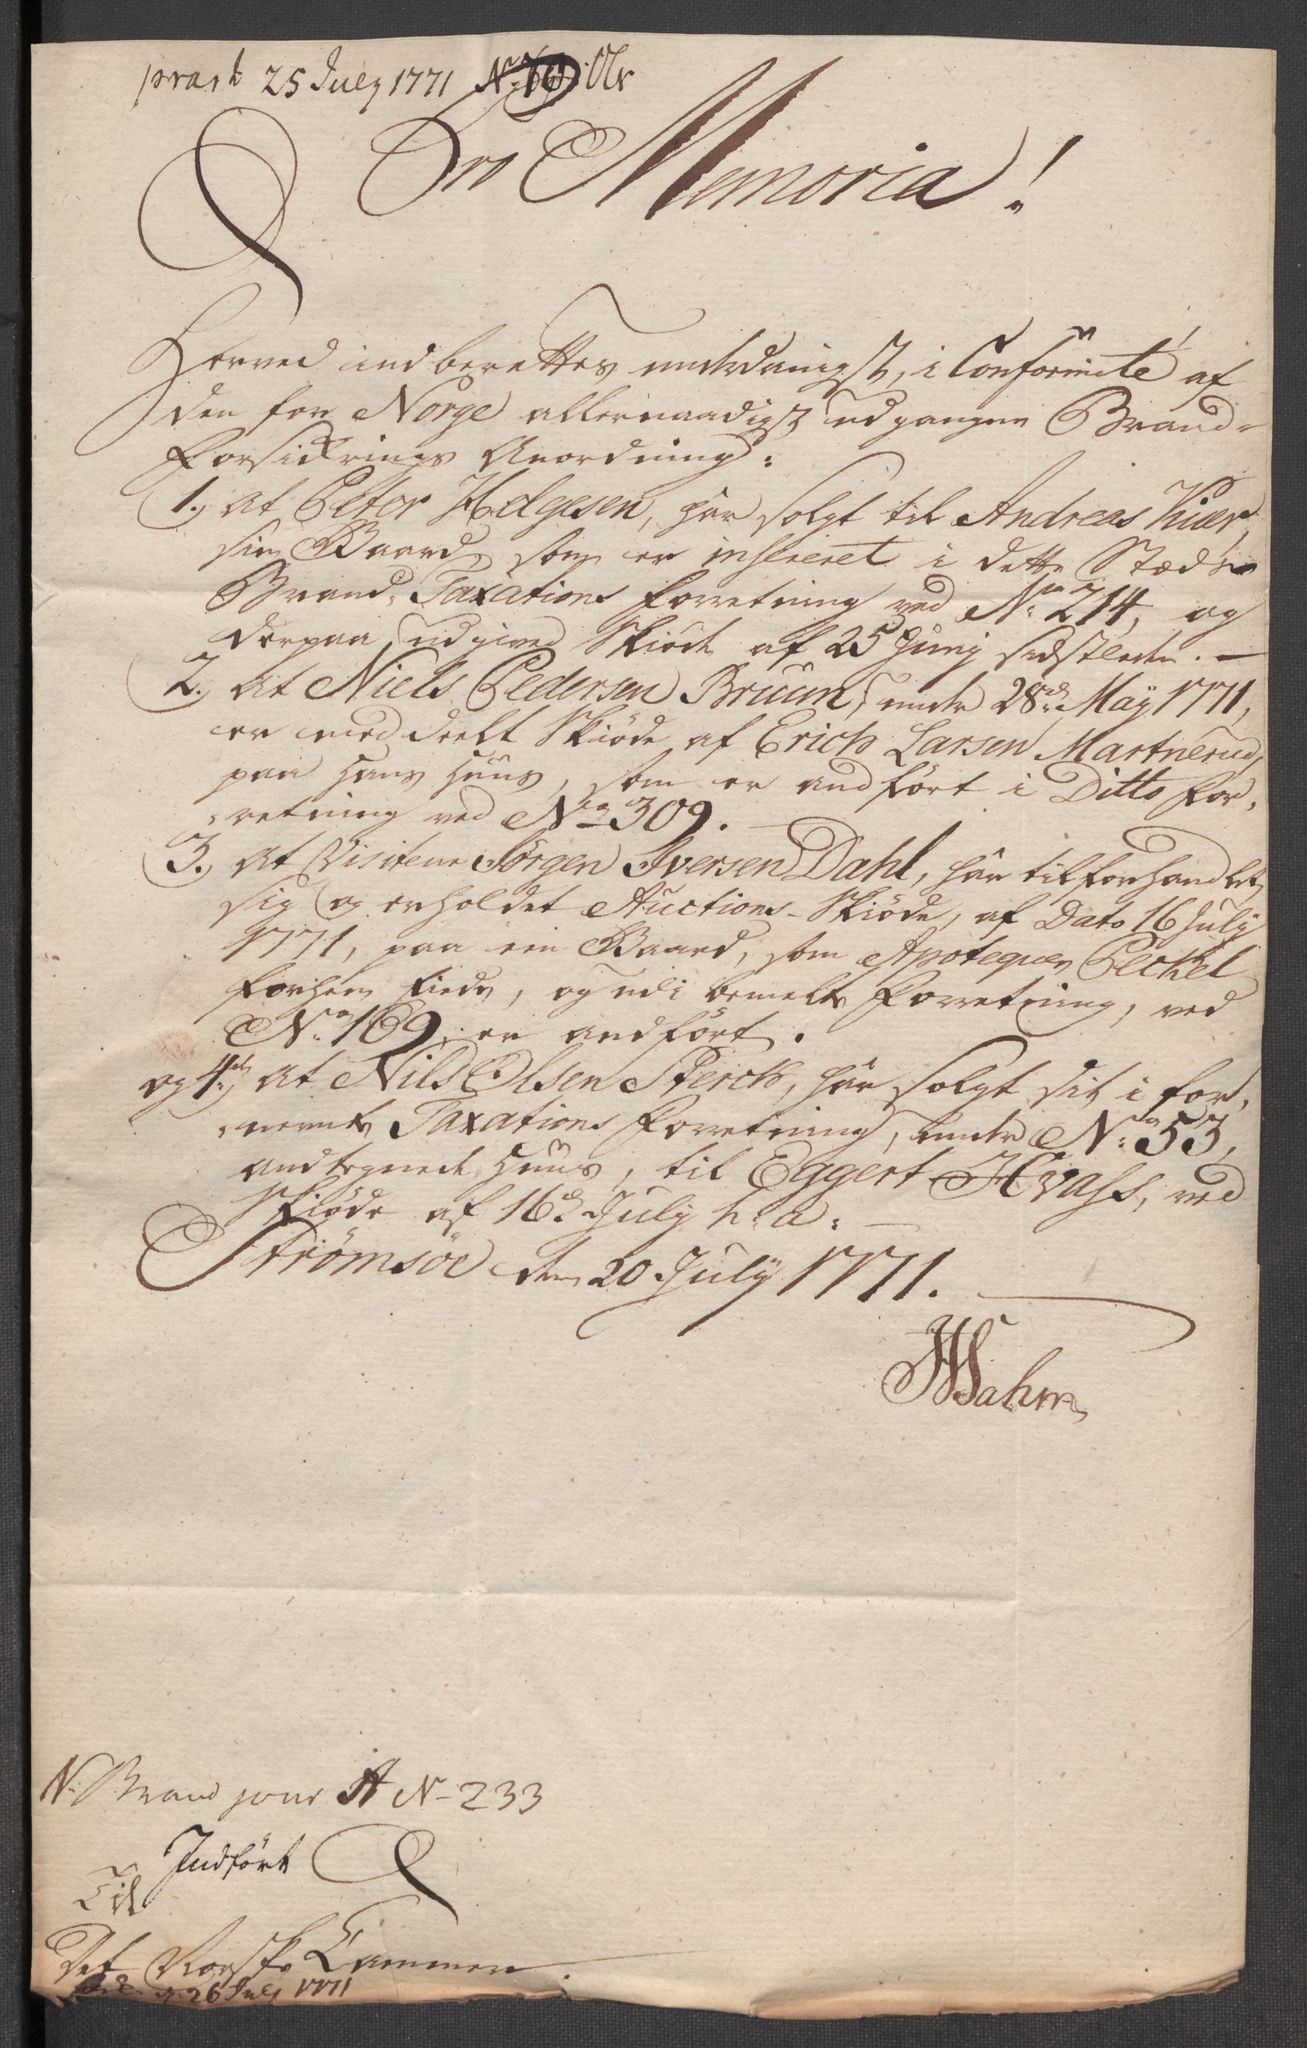 præst 25 July 1771
Pro Memoria!
Herved indberettes underdanigst, i Conformité af
den for Norge allernaadigst udgangne Brand-
Forsikrings Anordning:
1. at Peter Helgesen, har solgt til Andreas Kiær,
sin Gaard, som er insereret i dette Stæds
Brand-Taxations Forretning ved No. 214, og
derpaa udgived Skiøde af 25 Junij sidstleden. —
2. at Niels Pedersen Bruun, under 28de May 1771,
er meddeelt Skiøde af Erich Larsen Martnerud,
paa hans Huus, som er andført i Ditto For-
-retning ved No. 309.
3. at Visiteur Jørgen Iversen Dahl, har tilforhandlet
sig og erholdet Auctions-Skiøde, af Dato 16 July
1771, paa een Gaard, som Apotequer Peckel
forhen Eiede, og udi bemelte Forretning, ved
No. 169, er andført.
og 4de at Nils Olsen Sterch, har solgt sit i for-
-nevnte Taxations Forretning, under No. 53,
andtegnede Huus, til Eggert Hvass, ved
Skiøde af 16de July h: a: —
Strømsöe den 20 July 1771.
N. Brand jour A No 233
Indført
Til
Det Norske Cammer.
26 July 1771